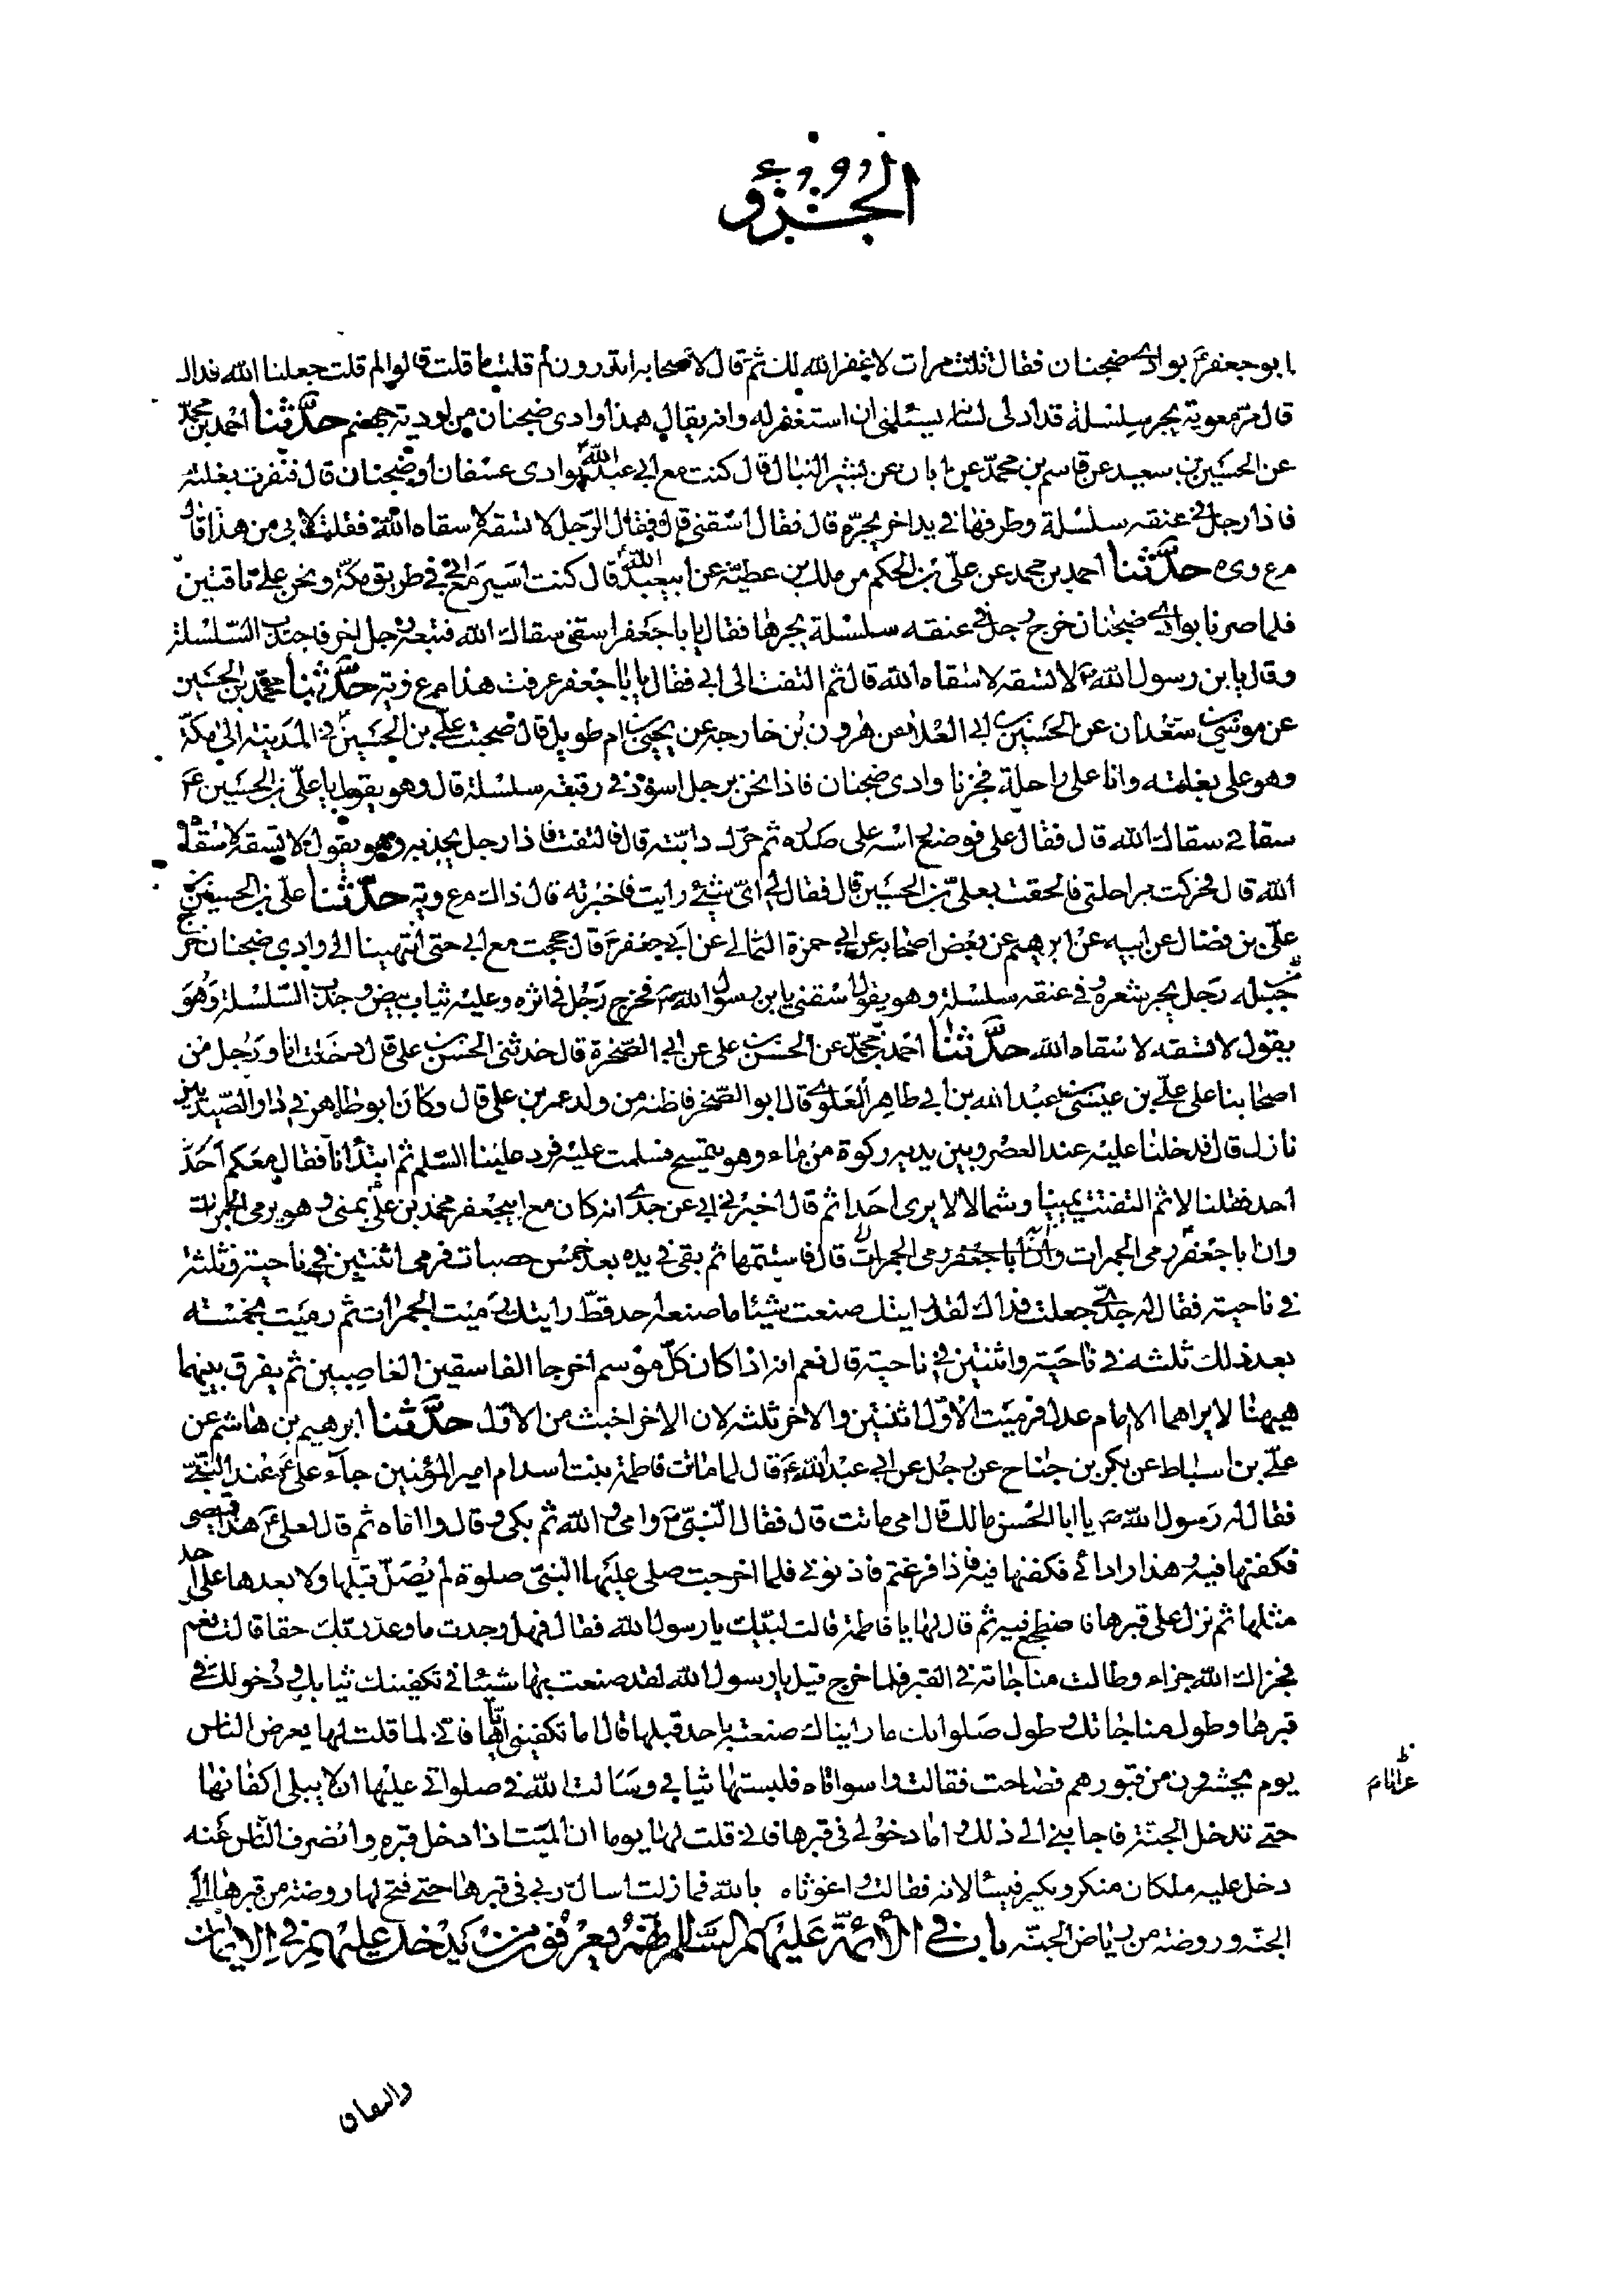 الجزؤ
ابو جعفرع بوادى ضجنان فقال ثلث مرات لا غفر الله لك ثم قال لاصحابه اتدرون لم قلت ما قلت قالوا لم قلت جعلنا الله فداك
قال مر معوية يجر سلسلة قد ادلى لسانه يسئلنى ان استغفر له وانه يقال هذا وادى ضجنان من اودية جهنم حدثنا احمد بن محمد
عن الحسين بن سعيد عن قاسم بن محمد عن ابان عن بشير النبال قال كنت مع ابى عبد الله بوادى عسفان او ضجنان قال فنفرت بغلته
فاذا رجل فى عنقه سلسلة وطرفها فى يد اخر يجره قال فقال اسقنى قال فقال الرجل لا تسقه لا سقاه الله فقلت لابى من هذا قال
مع وى ه حدثنا احمد بن محمد عن على بن الحكم من ملك بن عطية عن ابيعبد الله قال كنت اسير مع ابى فى طريق مكة ونحن على ناقتين
فلما صرنا بوادى ضجنان خرج رجل فى عنقه سلسلة يجرها فقال يابا جعفر اسقنى سقاك الله فتبعه رجل اخر فاجتذب السلسلة
وقال يا بن رسول الله ص لا تسقه لا سقاه الله قال ثم التفت الى ابى فقال يابا جعفر عرفت هذا مع وية حدثنا محمد بن الحسين
عن موسى بن سعدان عن الحسين بن ابى العلا عن هرون بن خارجه عن يحيى بن ام طويل قال صحبت على بن الحسين فى المدينة الى مكة
وهو على بغلته وانا على راحلة فجزنا وادى ضجنان فاذا نحن برجل اسود فى رقبته سلسلة قال وهو يقول يا على بن الحسين ع
سقانى سقاك الله قال فقال على فوضع راسه على صدره ثم حرك دابته قال فالتفت فاذا رجل يجذبه وهو يقول لا تسقه لا سقاه
الله قال فحركت براحلتى فالحقت بعلى بن الحسين قال فقال لى اى شئ رايت فاخبرته قال ذاك مع وية حدثنا على بن الحسين بن
على بن فضال عن ابيه عن ابرهيم عن بعض اصحابه عن ابى حمزة الثمالى عن ابى جعفرع قال حججت مع ابى حتى انتهينا الى وادى ضجنان خرج
من جبله رجل يجر شعره وفى عنقه سلسلة وهو يقول اسقنى يا بن رسول الله ص فخرج رجل فى اثره وعليه ثياب بيض وجذب السلسلة وهو
يقول لا تسقه لا سقاه الله حدثنا احمد بن محمد عن الحسن بن على عن ابى الصخرة قال حدثنى الحسن بن على قال دخلت انا ورجل من
اصحابنا على على بن عيسى بن عبد الله بن ابى طاهر العلوى قال ابو الصخر فاظنه من ولد عمر بن على قال وكان ابو طاهر فى دار الصيديين
نازل قال فدخلنا عليه عند العصر وبين يديه ركوة من ماء وهو يتمسح فسلمت عليه فرد علينا السلم ثم ابتدانا فقال معكم احد
احد فقلنا لا ثم التفت يمينا وشمالا لا يرى احدا ثم قال اخبرنى ابى عن جدى انه كان مع ابيجعفر محمد بن على بمنى وهو يرمى الجمرات
وان ابا جعفر رمى الجمرات وان ابا جعفر رمى الجمرات قال فاستتمها ثم بقى فى يده بعد خمس حصيات فرمى اثنتين فى ناحية وثلثة
فى ناحية فقال له جدى جعلت فداك لقد رايتك صنعت شيئا ما صنعه احد قط رايتك رميت الجمرات ثم رميت بخمسة
بعد ذلك ثلثه فى ناحية واثنتين فى ناحية قال نعم انه اذا كان كل موسم اخرجا الفاسقين الغاصبين ثم يفرق بينهما
هيهنا لا يراهما الا امام عدل فرميت الاول اثنتين والاخر ثلثه لان الاخر اخبث من الاول حدثنا ابرهيم بن هاشم عن
على بن اسباط عن بكر بن جناح عن رجل عن ابى عبد الله ع قال لما ماتت فاطمة بنت اسد ام امير المؤمنين جاء على ع عند النبى
فقال له رسول الله ص يا ابا الحسن مالك قال امى ماتت قال فقال النبى ص وامى والله ثم بكى وقال وااماه ثم قال لعلى ع هذا قميصى
فكفنها فيه وهذا ردائى فكفنها فيه فاذا فرغتم فاذنونى فلما اخرجت صلى عليها النبى صلوة لم يصل قبلها ولا بعدها على احد
مثلها ثم نزل على قبرها فاضطجع فيه ثم قال لها يا فاطمة قالت لبيك يا رسول الله فقال فهل وجدت ما وعد ربك حقا قالت نعم
فجزاك الله جزاء وطالت مناجاته فى القبر فلما خرج قيل يا رسول الله لقد صنعت بها شيئا فى تكفينك ثيابك ودخولك فى
قبرها وطول مناجاتك وطول صلواتك ما رايناك صنعته باحد قبلها قال اما تكفينى اياها فانى لما قلت لها يعرض الناس
يوم يحشرون من قبورهم فصاحت فقالت وا سواتاه فلبستها ثيابى وسالت الله فى صلواتى عليها ان لا يبلى اكفانها
حتى تدخل الجنة فاجابنى الى ذلك واما دخولى فى قبرها فانى قلت لها يوما ان الميت اذا دخل قبره وانصرف الناس عنه
دخل عليه ملكان منكر ونكير فيسئلانه فقالت واغوثاه بالله فما زلت اسال ربى فى قبرها حتى فتح لها روضة من قبرها الى
الجنه وروضة من رياض الجنه باب فى الأئمة عليهم السلم انهم يعرفون من يدخل عليهم فى الايمان
والنفاق